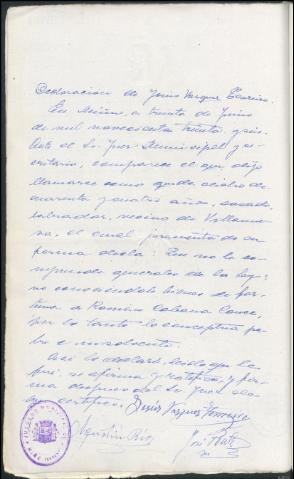 Declaración de Jesús Vazquez Ferreiro.
En Miño, a treinta de Junio
de mil novecientos treinta y seis.
Ante el Sr. Juez Municipal y se-
cretario, comparece el que dijo
llamarse como queda dicho de
cuarenta y cuatro años, casado,
labrador, vecino de Villanue-
va, el cual juramentado en
forma dice: Que no le com-
prende generales de la ley:
no conociéndole bienes de for-
tuna a Ramiro Cabana Conce,
por lo tanto lo conceptua po-
bre e insolvente.
Así lo declaró, leído que le
fué, se afirma y ratifica, y fir-
ma despues del Sr. Juez de
que certifico.
Jesús Vazquez Ferreiro
Agustín
José
JUZGADO MUNICIPAL